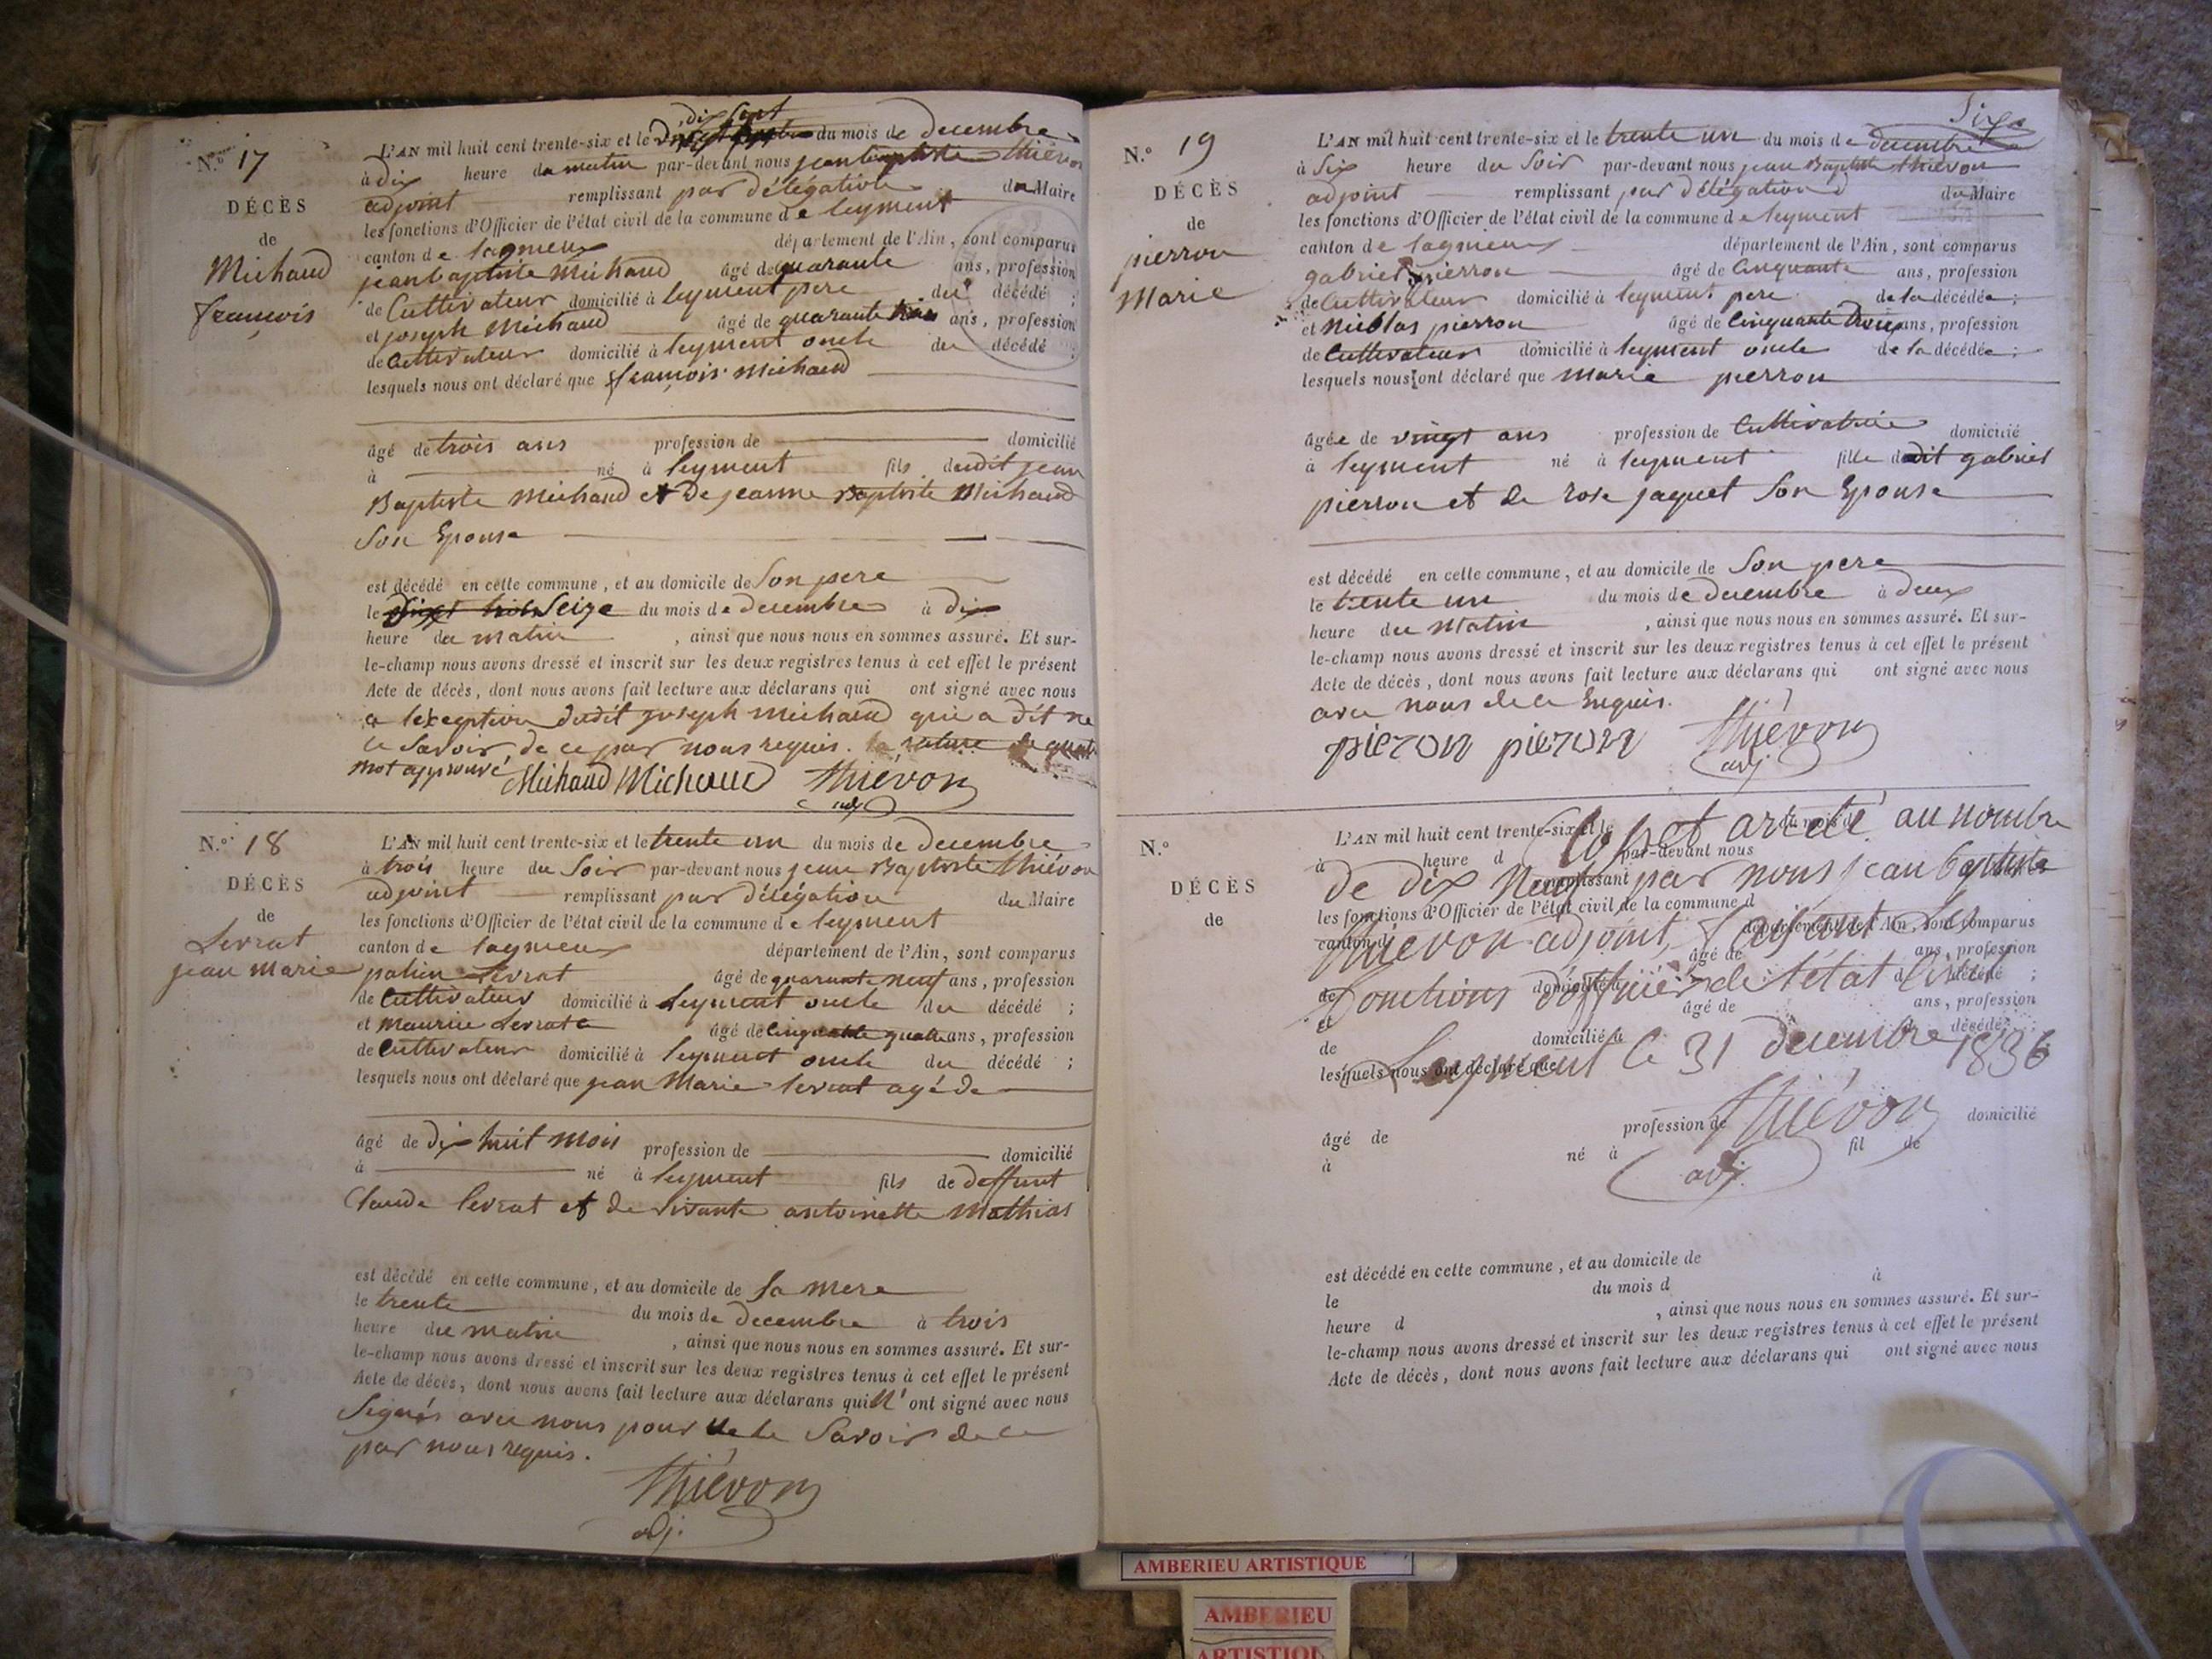 N.º 17
DÉCÈS
de
Michaud
françois
dix Sept
L'AN mil huit cent trente-six et le du mois de decembre
à dix heure du matin par-devant nous jean baptiste thiévon
adjoint remplissant par délégation du Maire
les fonctions d'Officier de l'état civil de la commune de leyment
canton de lagnieux département de l'Ain, sont comparus
jean baptiste Michaud âgé de quarante ans, profession
de Cultivateur domicilié à leyment pere du décédé ;
et joseph Michaud âgé de quarante trois ans, profession
de Cultivateur domicilié à leyment oncle du décédé ;
lesquels nous ont déclaré que françois Michaud
âgé de trois ans profession de domicilié
à né à leyment fils dudit jean
Baptiste Michaud et de jeanne Baptiste Michaud
Son Epouse
est décédé en cette commune, et au domicile de Son pere
le Seize du mois de decembre à dix
heure du matin , ainsi que nous nous en sommes assuré. Et sur-
le-champ nous avons dressé et inscrit sur les deux registres tenus à cet effet le présent
Acte de décès, dont nous avons fait lecture aux déclarans qui ont signé avec nous
a lexception dudit joseph Michaud qui a dit ne
le Savoir de ce par nous requis. la rature de quatre
mot approuvé Michaud Michaud thiévon
adj
N.º 18
DÉCÈS
de
Levrat
jean marie
L'AN mil huit cent trente-six et le trente un du mois de decembre
à trois heure du Soir par-devant nous jean Baptiste thiévon
adjoint remplissant par délégation du Maire
les fonctions d'Officier de l'état civil de la commune de leyment
canton de lagnieux département de l'Ain, sont comparus
Levrat âgé de quarante neuf ans, profession
de Cultivateur domicilié à leyment oncle du décédé ;
et Maurice Levrat âgé de Cinquante quatre ans, profession
de Cultivateur domicilié à leyment oncle du décédé ;
lesquels nous ont déclaré que jean Marie levrat agé de
âgé de dix huit mois profession de domicilié
à né à leyment fils de deffunt
Claude levrat et de vivante antoinette Mathias
est décédé en cette commune, et au domicile de Sa mere
le trente du mois de decembre à trois
heure du matin , ainsi que nous nous en sommes assuré. Et sur-
le-champ nous avons dressé et inscrit sur les deux registres tenus à cet effet le présent
Acte de décès, dont nous avons fait lecture aux déclarans qui n' ont signé avec nous
Signés avec nous pour ne le Savoir de ce
par nous requis.
thiévon
adj.
N.º 19
DÉCÈS
de
pierron
Marie
Six
L'AN mil huit cent trente-six et le trente un du mois de decembre
à Six heure du Soir par-devant nous jean Baptiste thiévon
adjoint remplissant par délégation du Maire
les fonctions d'Officier de l'état civil de la commune de leyment
canton de lagnieux département de l'Ain, sont comparus
gabriel pierron âgé de Cinquante ans, profession
de Cultivateur domicilié à leyment pere de la décédée ;
et Nicolas pierron âgé de Cinquante trois ans, profession
de Cultivateur domicilié à leyment oncle de la décédée ;
lesquels nous ont déclaré que Marie pierron
âgée de vingt ans profession de Cultivatrice domicilié
à leyment né à leyment fille dudit gabriel
pierron et de rose jaquet Son Epouse
est décédé en cette commune, et au domicile de Son pere
le trente un du mois de decembre à deux
heure du Matin , ainsi que nous nous en sommes assuré. Et sur-
le-champ nous avons dressé et inscrit sur les deux registres tenus à cet effet le présent
Acte de décès, dont nous avons fait lecture aux déclarans qui ont signé avec nous
avec nous de ce Enquis.
pieron pieron thiévon
adj
N.º
DÉCÈS
de
L'AN mil huit cent trente-six et le du mois d
Clos et arreté au nombre
à heure d par-devant nous
de dix Neuf par nous jean baptiste
remplissant
les fonctions d'Officier de l'état civil de la commune d
thievon adjoint, faisant les
canton d département de l'Ain, sont comparus
âgé de ans, profession
fonctions d'officier de l'état Civil
de domicilié à d décédé ;
et âgé de ans, profession
de domicilié à d décédé ;
Leyment le 31 decembre 1836
lesquels nous ont déclaré que
thiévon
adj.
âgé de profession de domicilié
à né à fil de
est décédé en cette commune, et au domicile de
le du mois d à
heure d , ainsi que nous nous en sommes assuré. Et sur-
le-champ nous avons dressé et inscrit sur les deux registres tenus à cet effet le présent
Acte de décès, dont nous avons fait lecture aux déclarans qui ont signé avec nous
AMBERIEU ARTISTIQUE
AMBERIEU